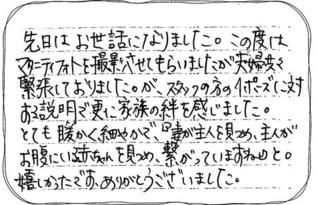 先日はお世話になりました。この度は
マタニティフォトを撮影させてもらいましたが夫婦共々
緊張しておりました。が、スタッフの方の1ポーズに対
する説明で更に家族の絆を感じました。
とても暖かく細やかで、"妻が主人を見つめ、主人が
お腹にいる赤ちゃんを見つめ、繋がっていますね"と。
嬉しかったです、ありがとうございました。